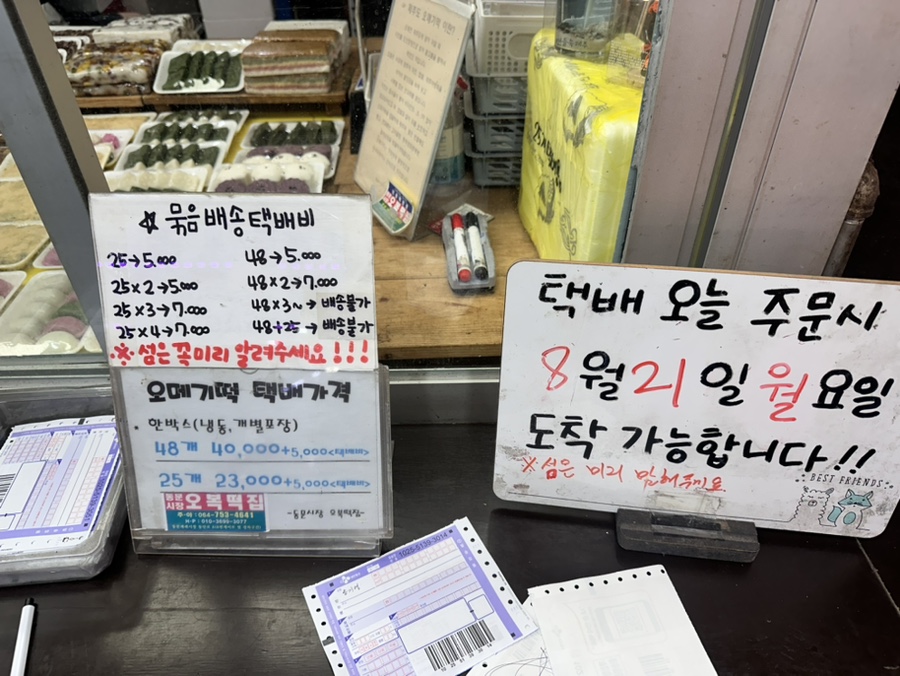 ☆ 묶음배송택배비
25→5.000
48→5.000
25×2→5.000
48×2→7.000
25×3→7.000
48×3~→배송불가
25×4→7.000
48+25→배송불가
※ 섬은 꼭미리 알려주세요!!!
오메기떡 택배가격
· 한박스(냉동,개별포장)
48개 40,000+5,000<택배비>
25개 23,000+5,000<택배비>
동문시장 오복떡집
주·야 : 064-753-4641
H·P : 010-3699-3077
-동문시장 오복떡집-
택배 오늘 주문시
8월 21일 월요일
도착 가능합니다!!
※섬은 미리 말해주세요
BEST FRIENDS